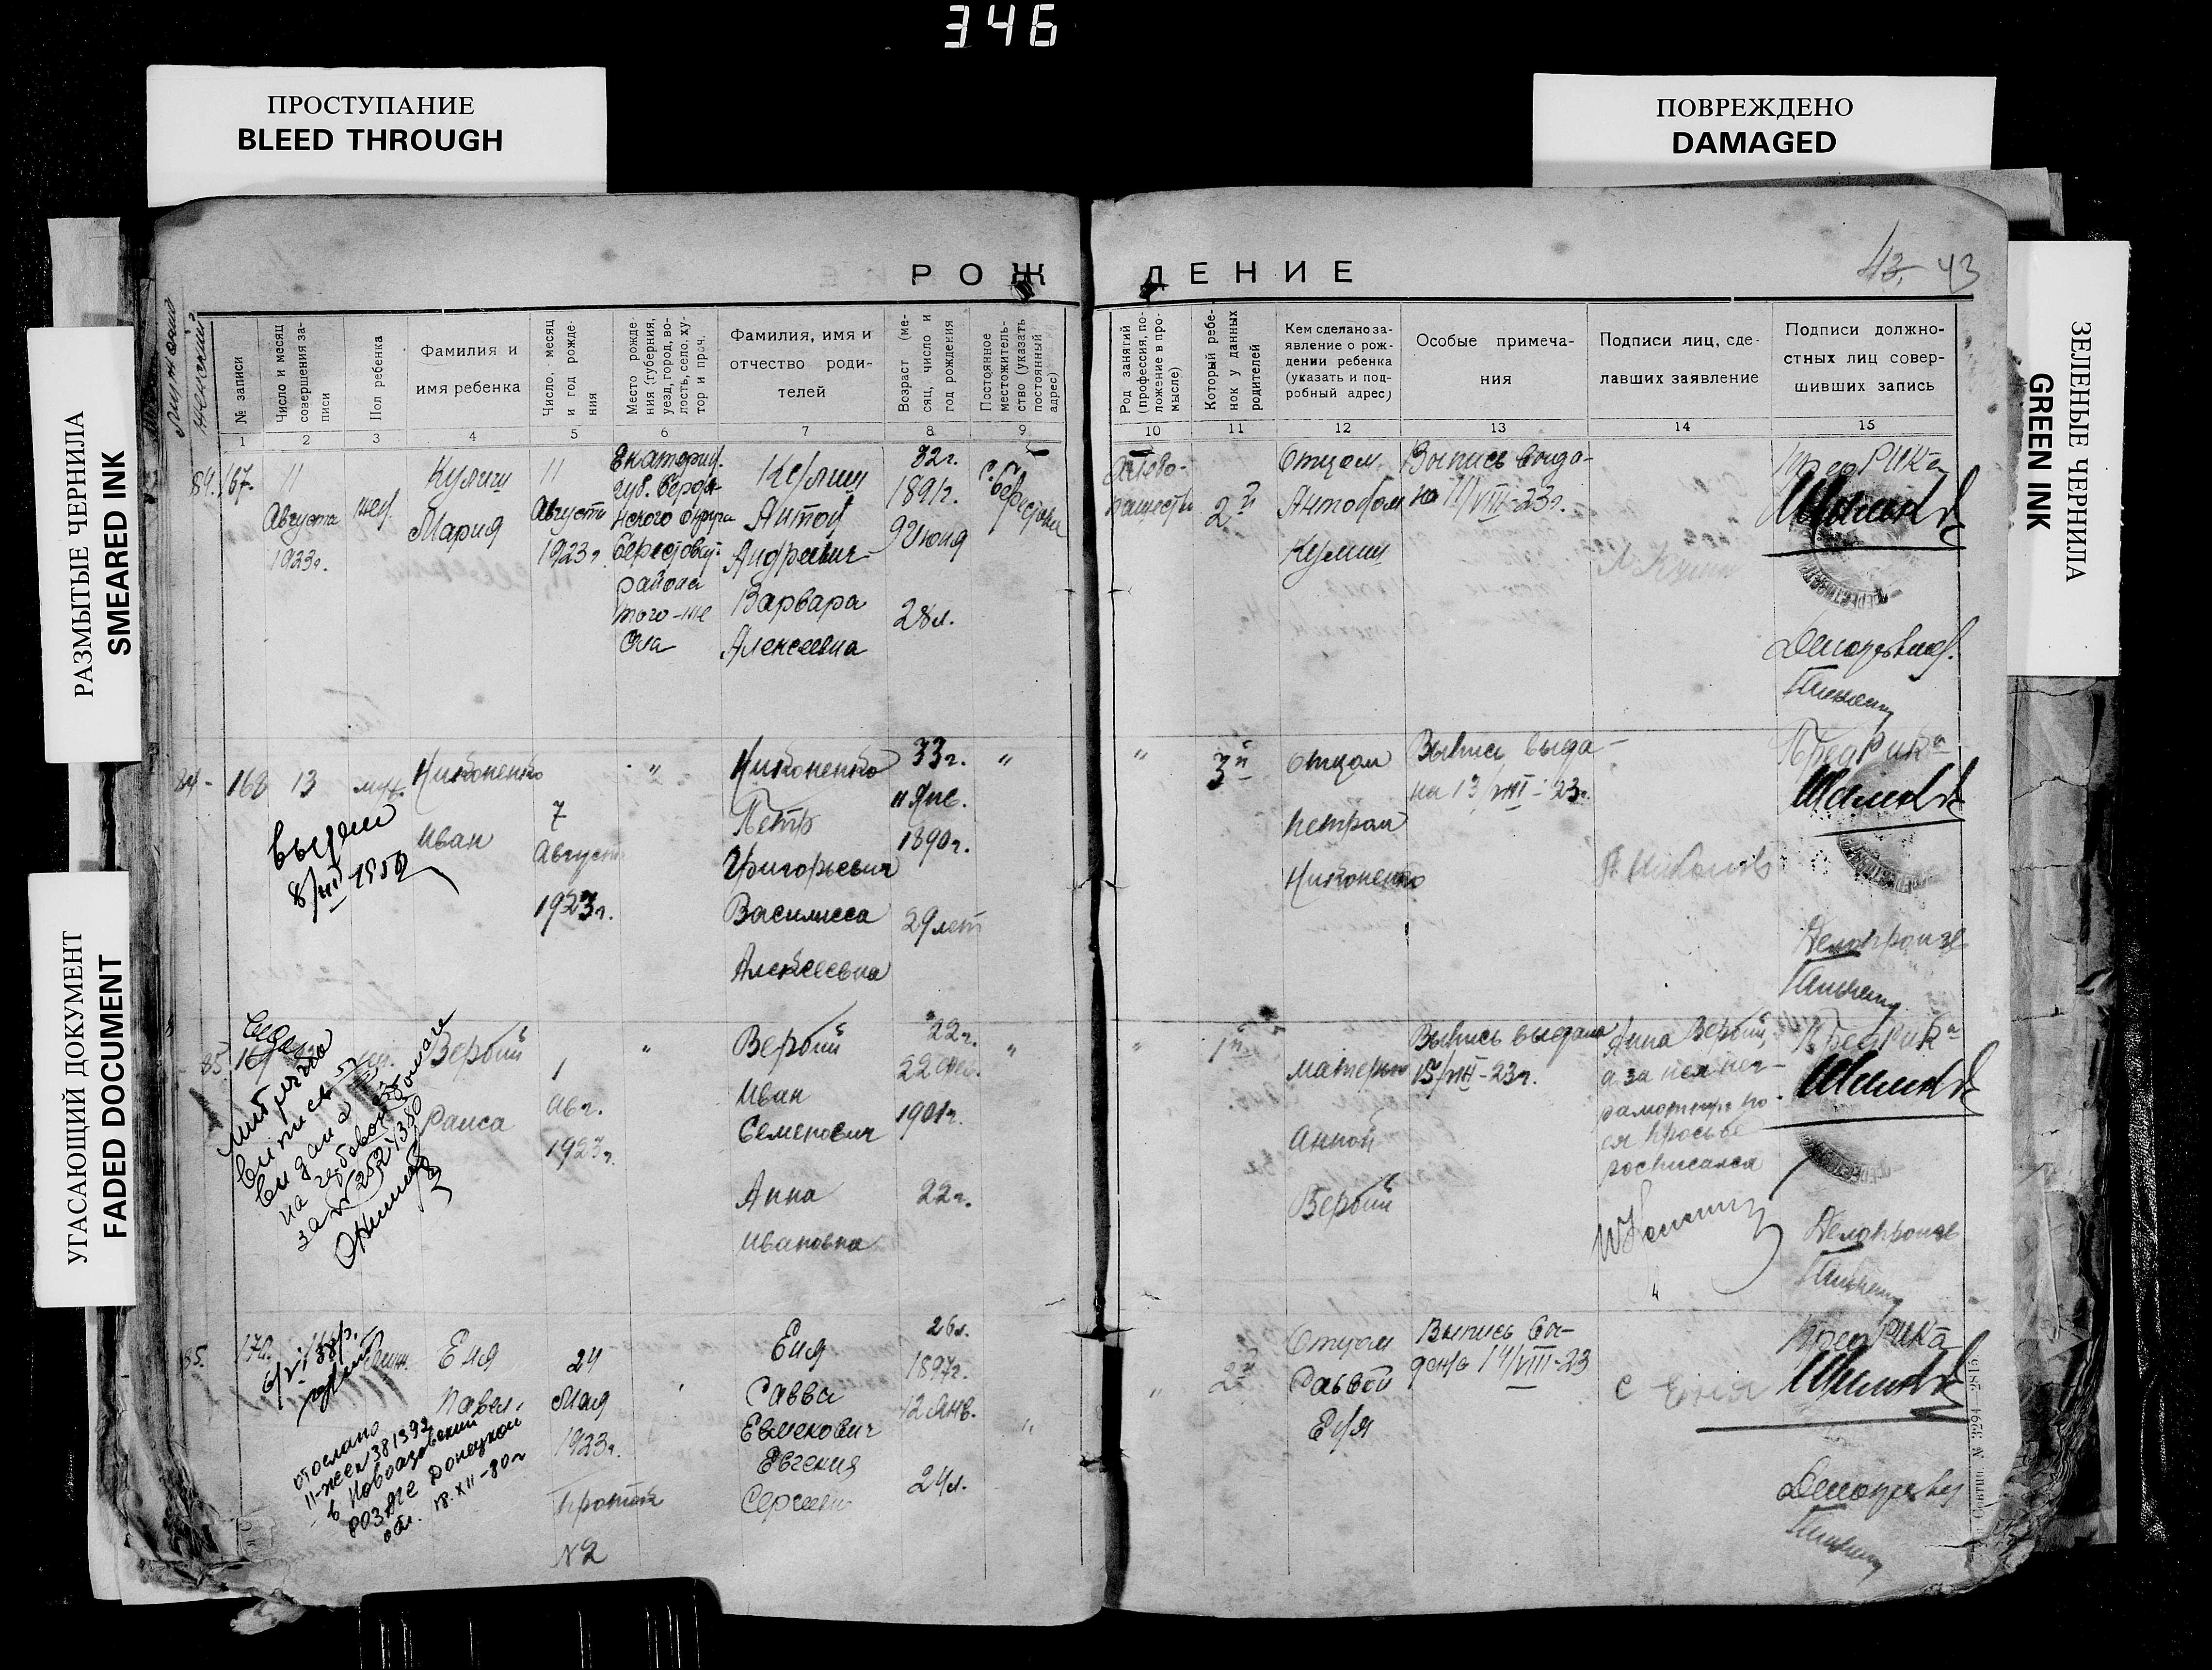 346
ПРОСТУПАНИЕ
BLEED THROUGH
ПОВРЕЖДЕНО
DAMAGED
РАЗМЫТЫЕ ЧЕРНИЛА
SMEARED INK
УГАСАЮЩИЙ ДОКУМЕНТ
FADED DOCUMENT
ЗЕЛЕНЫЕ ЧЕРНИЛА
GREEN INK
РОЖДЕНИЕ
43
женский
№ записи
Число и месяц
совершения за-
писи
Пол ребенка
Фамилия и
имя ребенка
Число, месяц
и год рожде-
ния
Место рожде-
ния (губерния,
уезд, город, во-
лость, село, ху-
тор и проч.
Фамилия, имя и
отчество роди-
телей
Возраст (ме-
сяц, число и
год рождения
Постоянное
местожитель-
ство (указать
постоянный
адрес)
Род занятий
(профессия, по-
ложение в про-
мысле)
Который ребе-
нок у данных
родителей
Кем сделано за-
явление о рож-
дении ребенка
(указать и под-
робный адрес)
Особые примеча-
ния
Подписи лиц, сде-
лавших заявление
Подписи должно-
стных лиц совер-
шивших запись
1 2 3 4 5 6 7 8 9 10 11 12 13 14 15
84. 167.
11
Августа
1923г.
жен.
Кулиш
Мария
11
Августа
1923г.
Екатерин.
губ. Бердя-
нского округа
Берестовск.
района
того-же
села
Кулиш
Антон
Андреевич
Варвара
Алексеевна
32г.
1891г.
9 июня
28л.
с. Берестовое
2й
Отцом
Антоном
Кулиш
Выпись выда-
на 11/VIII-23г.
Пред РИКа
Делопроизв.
84 - 168
13
муж.
Никоненко
Иван
7
Август
1923г.
"
Никоненко
Петр
Григорьевич
Василисса
Алексеевна
33г.
11 Янв.
1890г.
29 лет
"
"
3й
отцом
Петром
Никоненко
Выпись выда-
на 13/VIII-23г.
Пред Рика
Делопроизв
8/VII 1950
85. 169
Вербий
Раиса
1
авг.
1923г.
"
Вербий
Иван
Семенович
Анна
Ивановна
22г.
1901г.
22г.
"
"
1й
матерью
Анной
Вербий
Выпись выдана
15/VIII-23г.
Анна Вербий,
а за нея нег-
рамотную по
ея просьбе
росписался
Пред Рика
Делопроизв
85. 170.
Еня
Павел
24
Мая
1923г.
Проток
№2
Еня
Савва
Евменович
Евгения
Сергеевн
26л.
1897г.
12 Янв.
24л.
"
"
2й
Отцом
Саввой
Еня
Выпись вы-
дана 14/VIII-23
С Еня
Пред РИКа
Делопроизв
отослано
в Новоазовский
РОЗАГС Донецкой
обл. 18.XII-80г